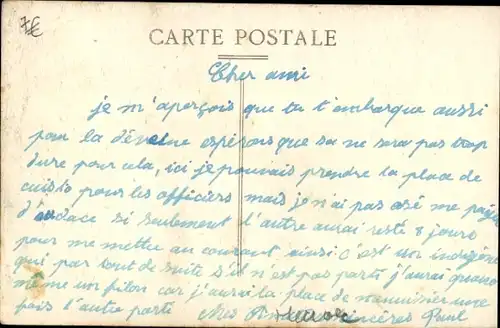 7€
CARTE POSTALE
Cher ami
je m'aperçois que tu t'embarque aussi
pour la déveine espérons que sa ne sera pas trop
dure pour cela, ici je pouvais prendre la place de
cuisto pour les officiers mais je n'ai pas osé me payer
d'audace si seulement l'autre aurai resté 8 jours
pour me mettre au courant ainsi c'est un indigène
qui par tout de suite s'il n'est pas parti j'aurai quand
même un filon car j'aurai la place de menuisier une
fois l'autre parti Mes sincères Paul